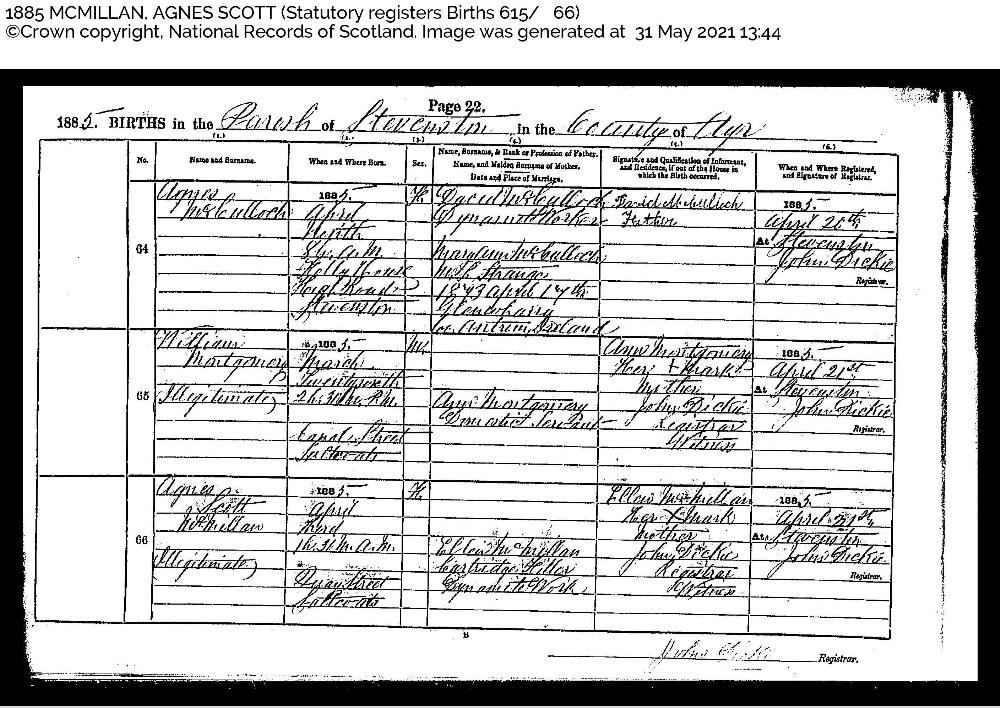 1885 MCMILLAN, AGNES SCOTT (Statutory registers Births 615/ 66)
©Crown copyright, National Records of Scotland. Image was generated at 31 May 2021 13:44
Page 22.
1885. BIRTHS in the Parish of Stevenston in the County of Ayr
(1.) (2.) (3.) (4.) (5.) (6.)
No.
Name and Surname.
When and Where Born.
Sex.
Name, Surname, & Rank or Profession of Father.
Name, and Maiden Surname of Mother.
Date and Place of Marriage.
Signature and Qualification of Informant,
and Residence, if out of the House in
which the Birth occurred.
When and Where Registered,
and Signature of Registrar.
64
Agnes
McCulloch
1885.
April
A.M.
Holly House
High Road
Stevenston
F.
David McCulloch
Dynamite Worker
Mary Ann McCulloch
m.s. Strange
1873 April 17th
Co. Antrim, Ireland
David McCulloch
Father
1885.
April 20th
At Stevenston
John Dickie
Registrar.
65
William
Montgomery
(Illegitimate)
1885.
March
2h. 30m. P.M.
Canal Street
Saltcoats
M.
Ann Montgomery
Domestic Servant
Ann Montgomery
Her X Mark
Mother
John Dickie
Registrar
Witness
1885.
April 21st
At Stevenston
John Dickie
Registrar.
66
Agnes
Scott
McMillan
(Illegitimate)
1885.
April
A.M.
Quay Street
Saltcoats
F.
Ellen McMillan
Cartridge Filler
Dynamite Work
Ellen McMillan
Her X Mark
Mother
John Dickie
Registrar
Witness
1885.
April 21st
At Stevenston
John Dickie
Registrar.
B
John Dickie Registrar.